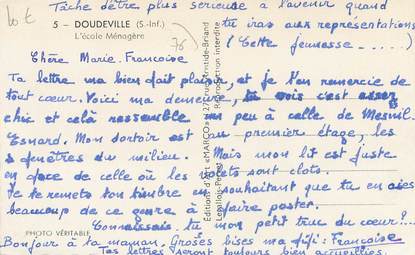 Tâche d'être plus sérieuse à l'avenir quand
tu iras aux représentations
(Cette jeunesse .....)
60 €
5 - DOUDEVILLE (S.-Inf.)
L'école Ménagère
76
Chère Marie-Françoise
Ta lettre m'a bien fait plaisir, et je t'en remercie de
tout cœur. Voici ma demeure, tu vois c'est assez
chic et celà ressemble un peu à celle de Mesnil
Esnard. Mon dortoir est au premier étage, les
3 fenêtres du milieu. Mais mon lit est juste
en face de celle où les volets sont clots.
Je te remets ton timbre en souhaitant que tu en aies
beaucoup de ce genre à faire poster.
Connaissais-tu mon petit truc du cœur?...
Bonjour à ta maman. Groses bises ma fifi: Françoise
Tes lettres seront toujours bien accueillies.
PHOTO VÉRITABLE
Editions d'Art «MARCO» 27, Rue Aristide-Briand
Reproduction interdite